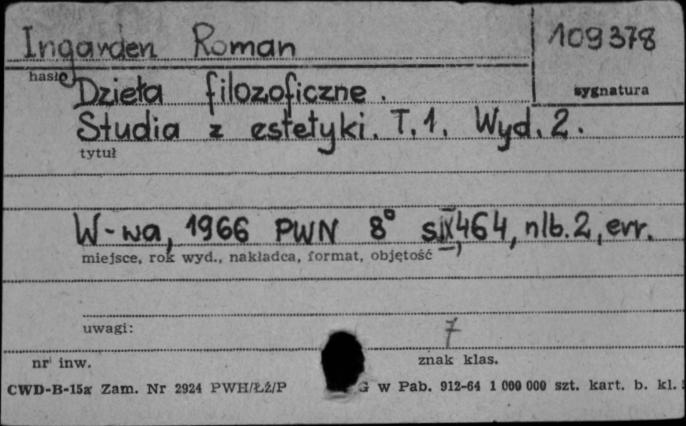 Ingarden Roman 109378
hasło sygnatura
Dzieła filozoficzne.
Studia z estetyki. T.1. Wyd. 2.
tytuł
W-wa, 1966 PWN 8° s. IX, 464, nlb. 2, err.
miejsce, rok wyd., nakładca, format, objętość
uwagi: 7
nr inw. znak klas.
CWD-B-15a Zam. Nr 2924 PWH/Łź/P G w Pab. 912-64 1 000 000 szt. kart. b. kl.